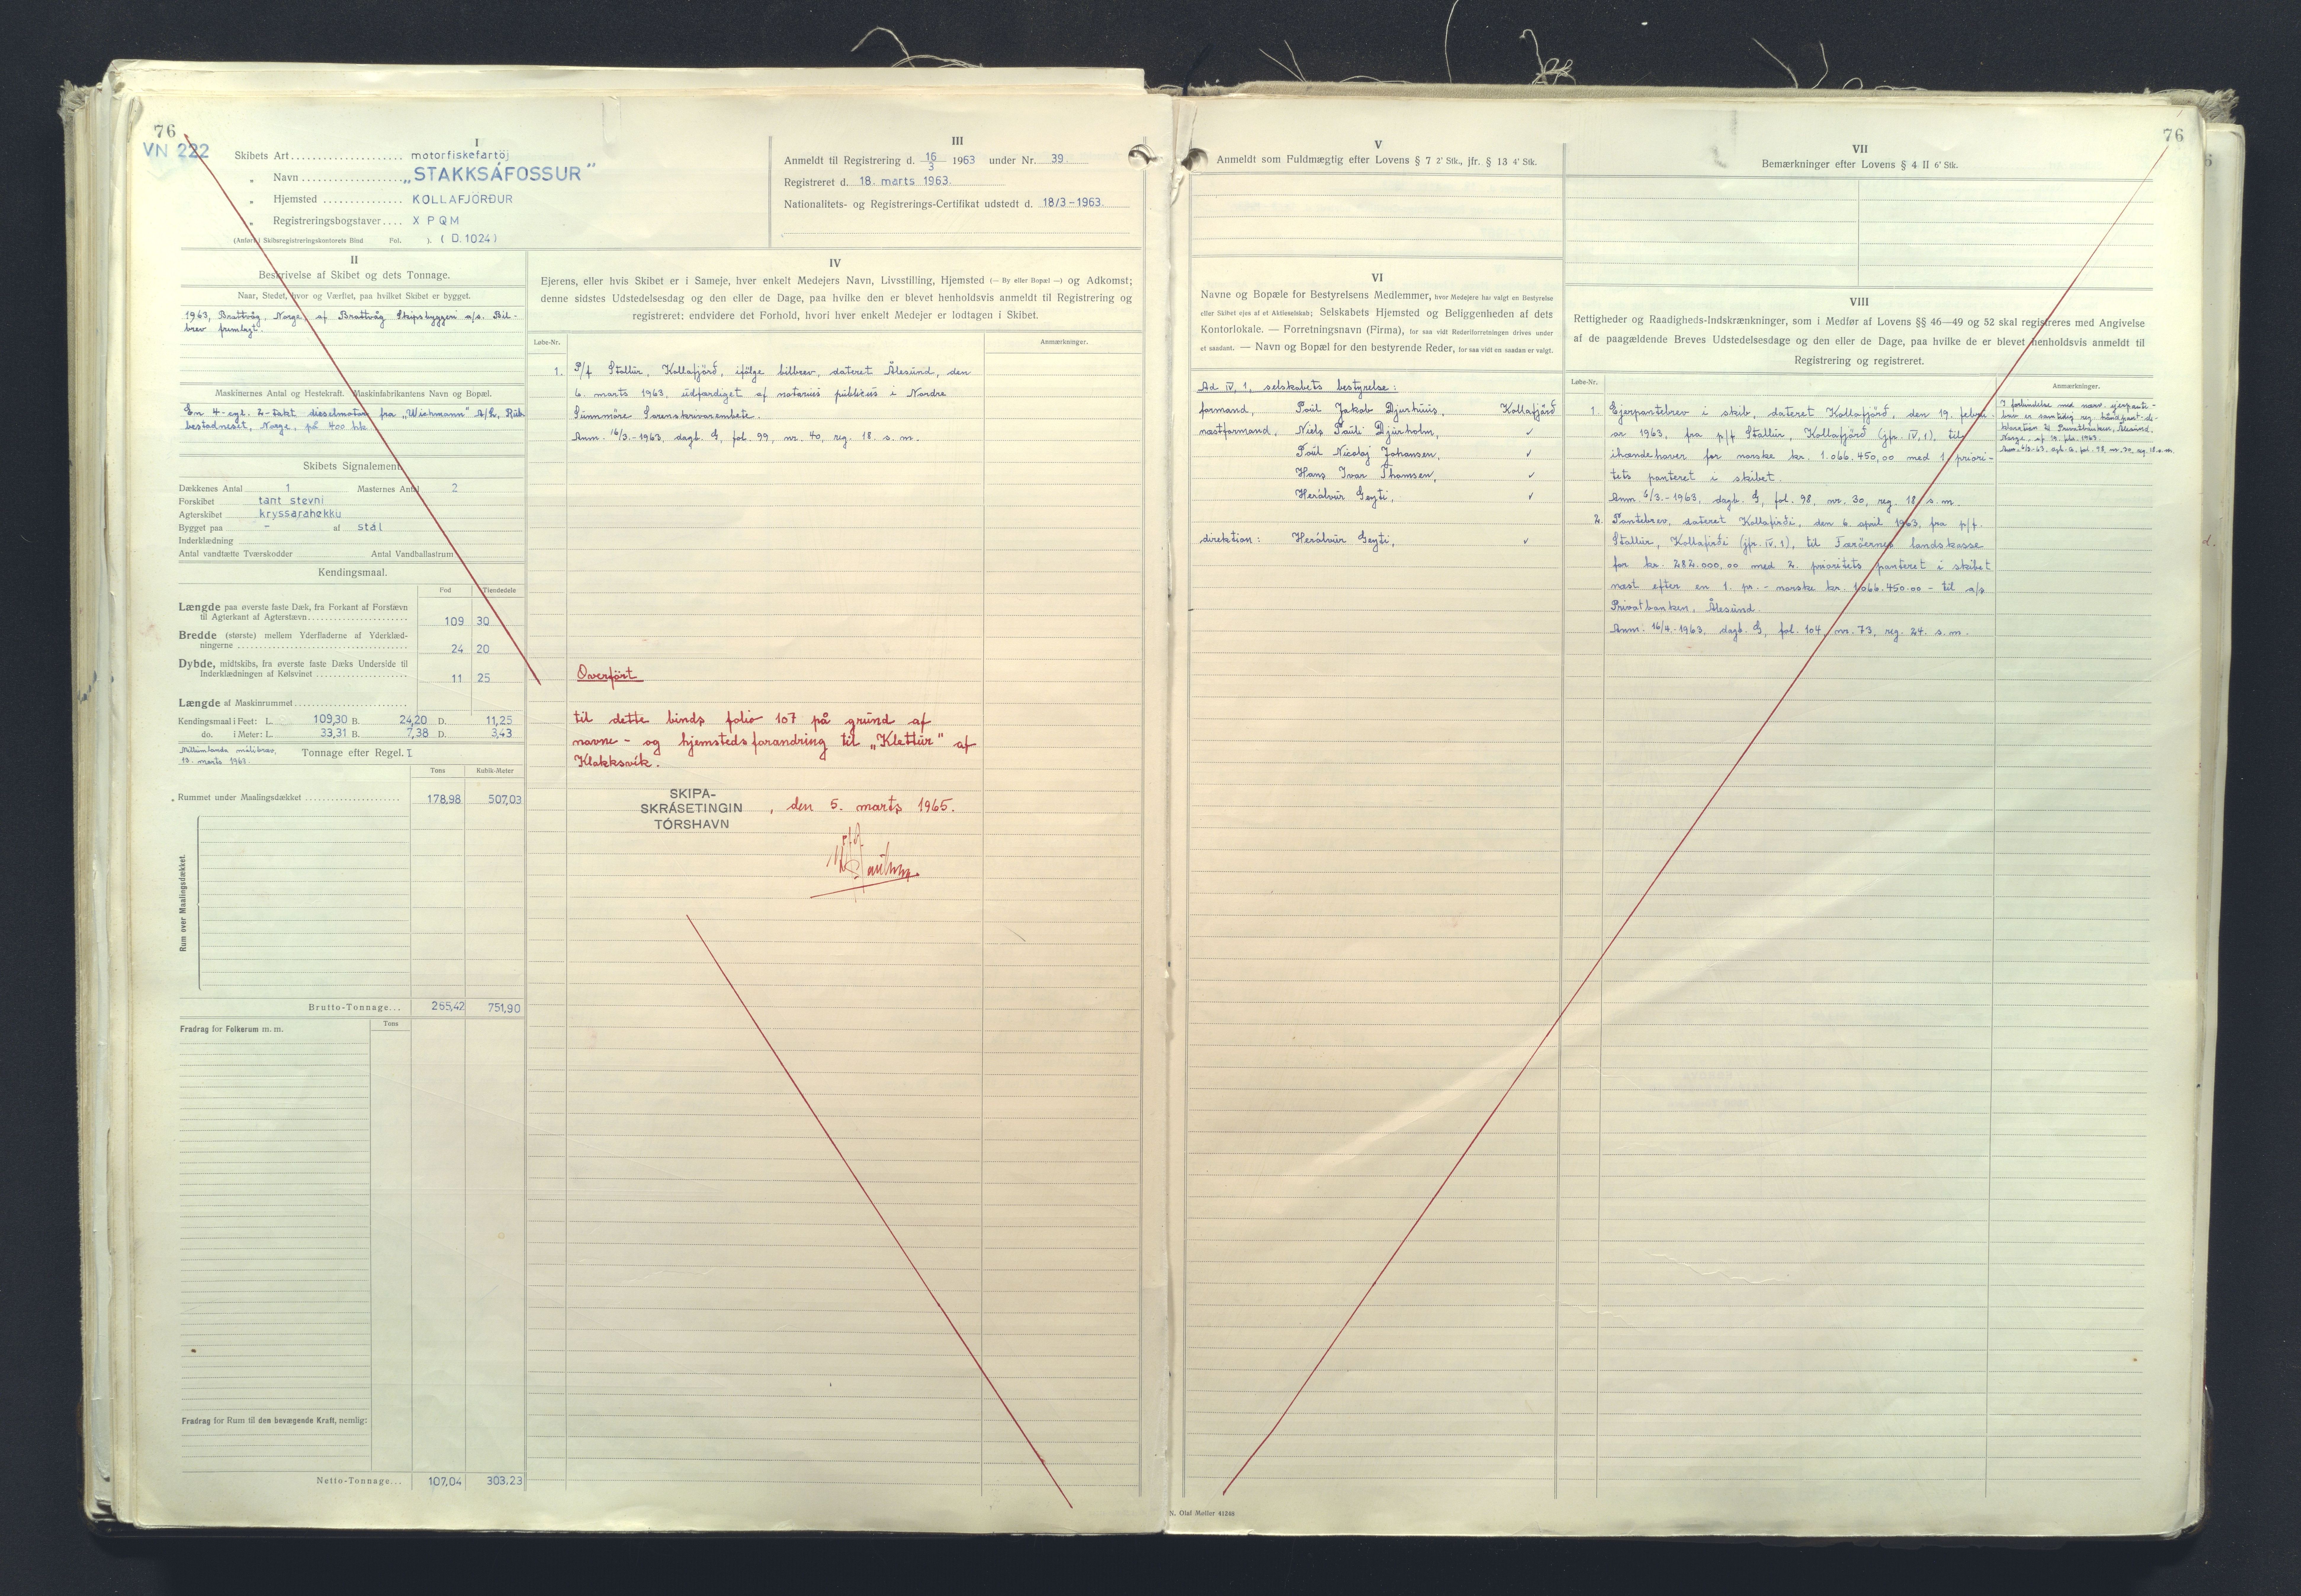 76
VN 222
I
Skibets Art motorfiskefartöj
„ Navn „STAKKSÁFOSSUR"
„ Hjemsted KOLLAFJÖRÐUR
„ Registreringsbogstaver X P Q M
Skibsregistreringskontorets Bind Fol. ). ( D. 1024)
III
Anmeldt til Registrering d. 16/3 1963 under Nr. 39
Registreret d. 18. marts 1963.
Nationalitets- og Registrerings-Certifikat udstedt d. 18/3-1963.
II
Beskrivelse af Skibet og dets Tonnage.
Naar, Stedet, hvor og Værftet, paa hvilket Skibet er bygget.
1963, Brattvåg, Norge, af Brattvåg Skipsbyggeri a/s. Bil-
brev fremlagt.
Maskinernes Antal og Hestekraft. Maskinfabrikantens Navn og Bopæl.
En 4-cyl. 2-takt dieselmotor fra „Wichmann" A/S, Rub-
bestadneset, Norge, på 400 hk.
Skibets Signalement
Dækkenes Antal 1 Masternes Antal 2
Forskibet tant stevni
Agterskibet kryssarahekku
Bygget paa - af stál
Inderklædning
Antal vandtætte Tværskodder Antal Vandballastrum
Kendingsmaal.
Fod Tiendedele
Længde paa øverste faste Dæk, fra Forkant af Forstævn
til Agterkant af Agterstævn 109 30
Bredde (største) mellem Yderfladerne af Yderklæd-
ningerne 24 20
Dybde, midtskibs, fra øverste faste Dæks Underside til
Inderklædningen af Kølsvinet 11 25
Længde af Maskinrummet
Kendingsmaal i Feet: L. 109,30 B. 24,20 D. 11,25
do. i Meter: L. 33,31 B. 7,38 D. 3,43
Millumlanda málibræv,
13. marts 1963.
Tonnage efter Regel. I.
Tons Kubik-Meter
Rummet under Maalingsdækket 178,98 507,03
Rum over Maalingsdækket.
Brutto-Tonnage... 265,42 751,90
Fradrag for Folkerum m. m. Tons
Fradrag for Rum til den bevægende Kraft, nemlig:
Netto-Tonnage... 107,04 303,23
IV
Ejerens, eller hvis Skibet er i Sameje, hver enkelt Medejers Navn, Livsstilling, Hjemsted (— By eller Bopæl —) og Adkomst;
denne sidstes Udstedelsesdag og den eller de Dage, paa hvilke den er blevet henholdsvis anmeldt til Registrering og
registreret: endvidere det Forhold, hvori hver enkelt Medejer er lodtagen i Skibet.
Løbe-Nr. Anmærkninger.
1. P/f Stallur, Kollafjörð, ifölge bilbrev, dateret Ålesund, den
6. marts 1963, udfærdiget af notarius publicus i Nordre
Sunnmöre Sorenskrivarembete.
Anm. 16/3-1963, dagb. G, fol. 99, nr. 40, reg. 18. s. m.
Overfört
til dette binds folio 107 på grund af
navne- og hjemstedsforandring til „Klettur" af
Klakksvík.
SKIPA-
SKRÁSETINGIN
TÓRSHAVN
, den 5. marts 1965.
V
Anmeldt som Fuldmægtig efter Lovens § 7 2' Stk., jfr. § 13 4' Stk.
VI
Navne og Bopæle for Bestyrelsens Medlemmer, hvor Medejere har valgt en Bestyrelse
eller Skibet ejes af et Aktieselskab; Selskabets Hjemsted og Beliggenheden af dets
Kontorlokale. — Forretningsnavn (Firma), for saa vidt Rederiforretningen drives under
et saadant. — Navn og Bopæl for den bestyrende Reder, for saa vidt en saadan er valgt.
Ad IV, 1, selskabets bestyrelse:
formand, Poul Jakob Djurhuus, Kollafjörð
næstformand, Niels Pauli Djurholm, ✓
Poul Nicolaj Johansen, ✓
Hans Ivar Thomsen, ✓
Herálvur Geyti, ✓
direktion: Herálvur Geyti, ✓
76
VII
Bemærkninger efter Lovens § 4 II 6' Stk.
VIII
Rettigheder og Raadigheds-Indskrænkninger, som i Medfør af Lovens §§ 46—49 og 52 skal registreres med Angivelse
af de paagældende Breves Udstedelsesdage og den eller de Dage, paa hvilke de er blevet henholdsvis anmeldt til
Registrering og registreret.
Løbe-Nr. Anmærkninger.
1. Ejerpantebrev i skib, dateret Kollafjörð, den 19. febru-
ar 1963, fra p/f Stallur, Kollafjörð (jfr. IV, 1), til
ihændehaver for norske kr. 1.066.450,00 med 1. priori-
tets panteret i skibet.
Anm. 6/3.-1963, dagb. G, fol. 98, nr. 30, reg. 18. s. m.
I forbindelse med nærv. ejerpante-
brev er samtidig reg. håndpant-de-
klaration til Privatbanken, Ålesund,
Norge, af 19. feb. 1963.
Anm. 6/3-63, dagb. G, fol. 98, nr. 30, reg. 18. s. m.
2. Pantebrev, dateret Kollafirði, den 6. april 1963, fra p/f.
Stallur, Kollafirði (jfr. IV, 1), til Færöernes landskasse
for kr. 282.000,00 med 2. prioritets panteret i skibet
næst efter en 1. pr. - norske kr. 1.066.450.00 - til a/s
Privatbanken, Ålesund.
Anm. 16/4.-1963, dagb. G, fol. 104, nr. 73, reg. 24. s. m.
N. Olaf Møller 41288